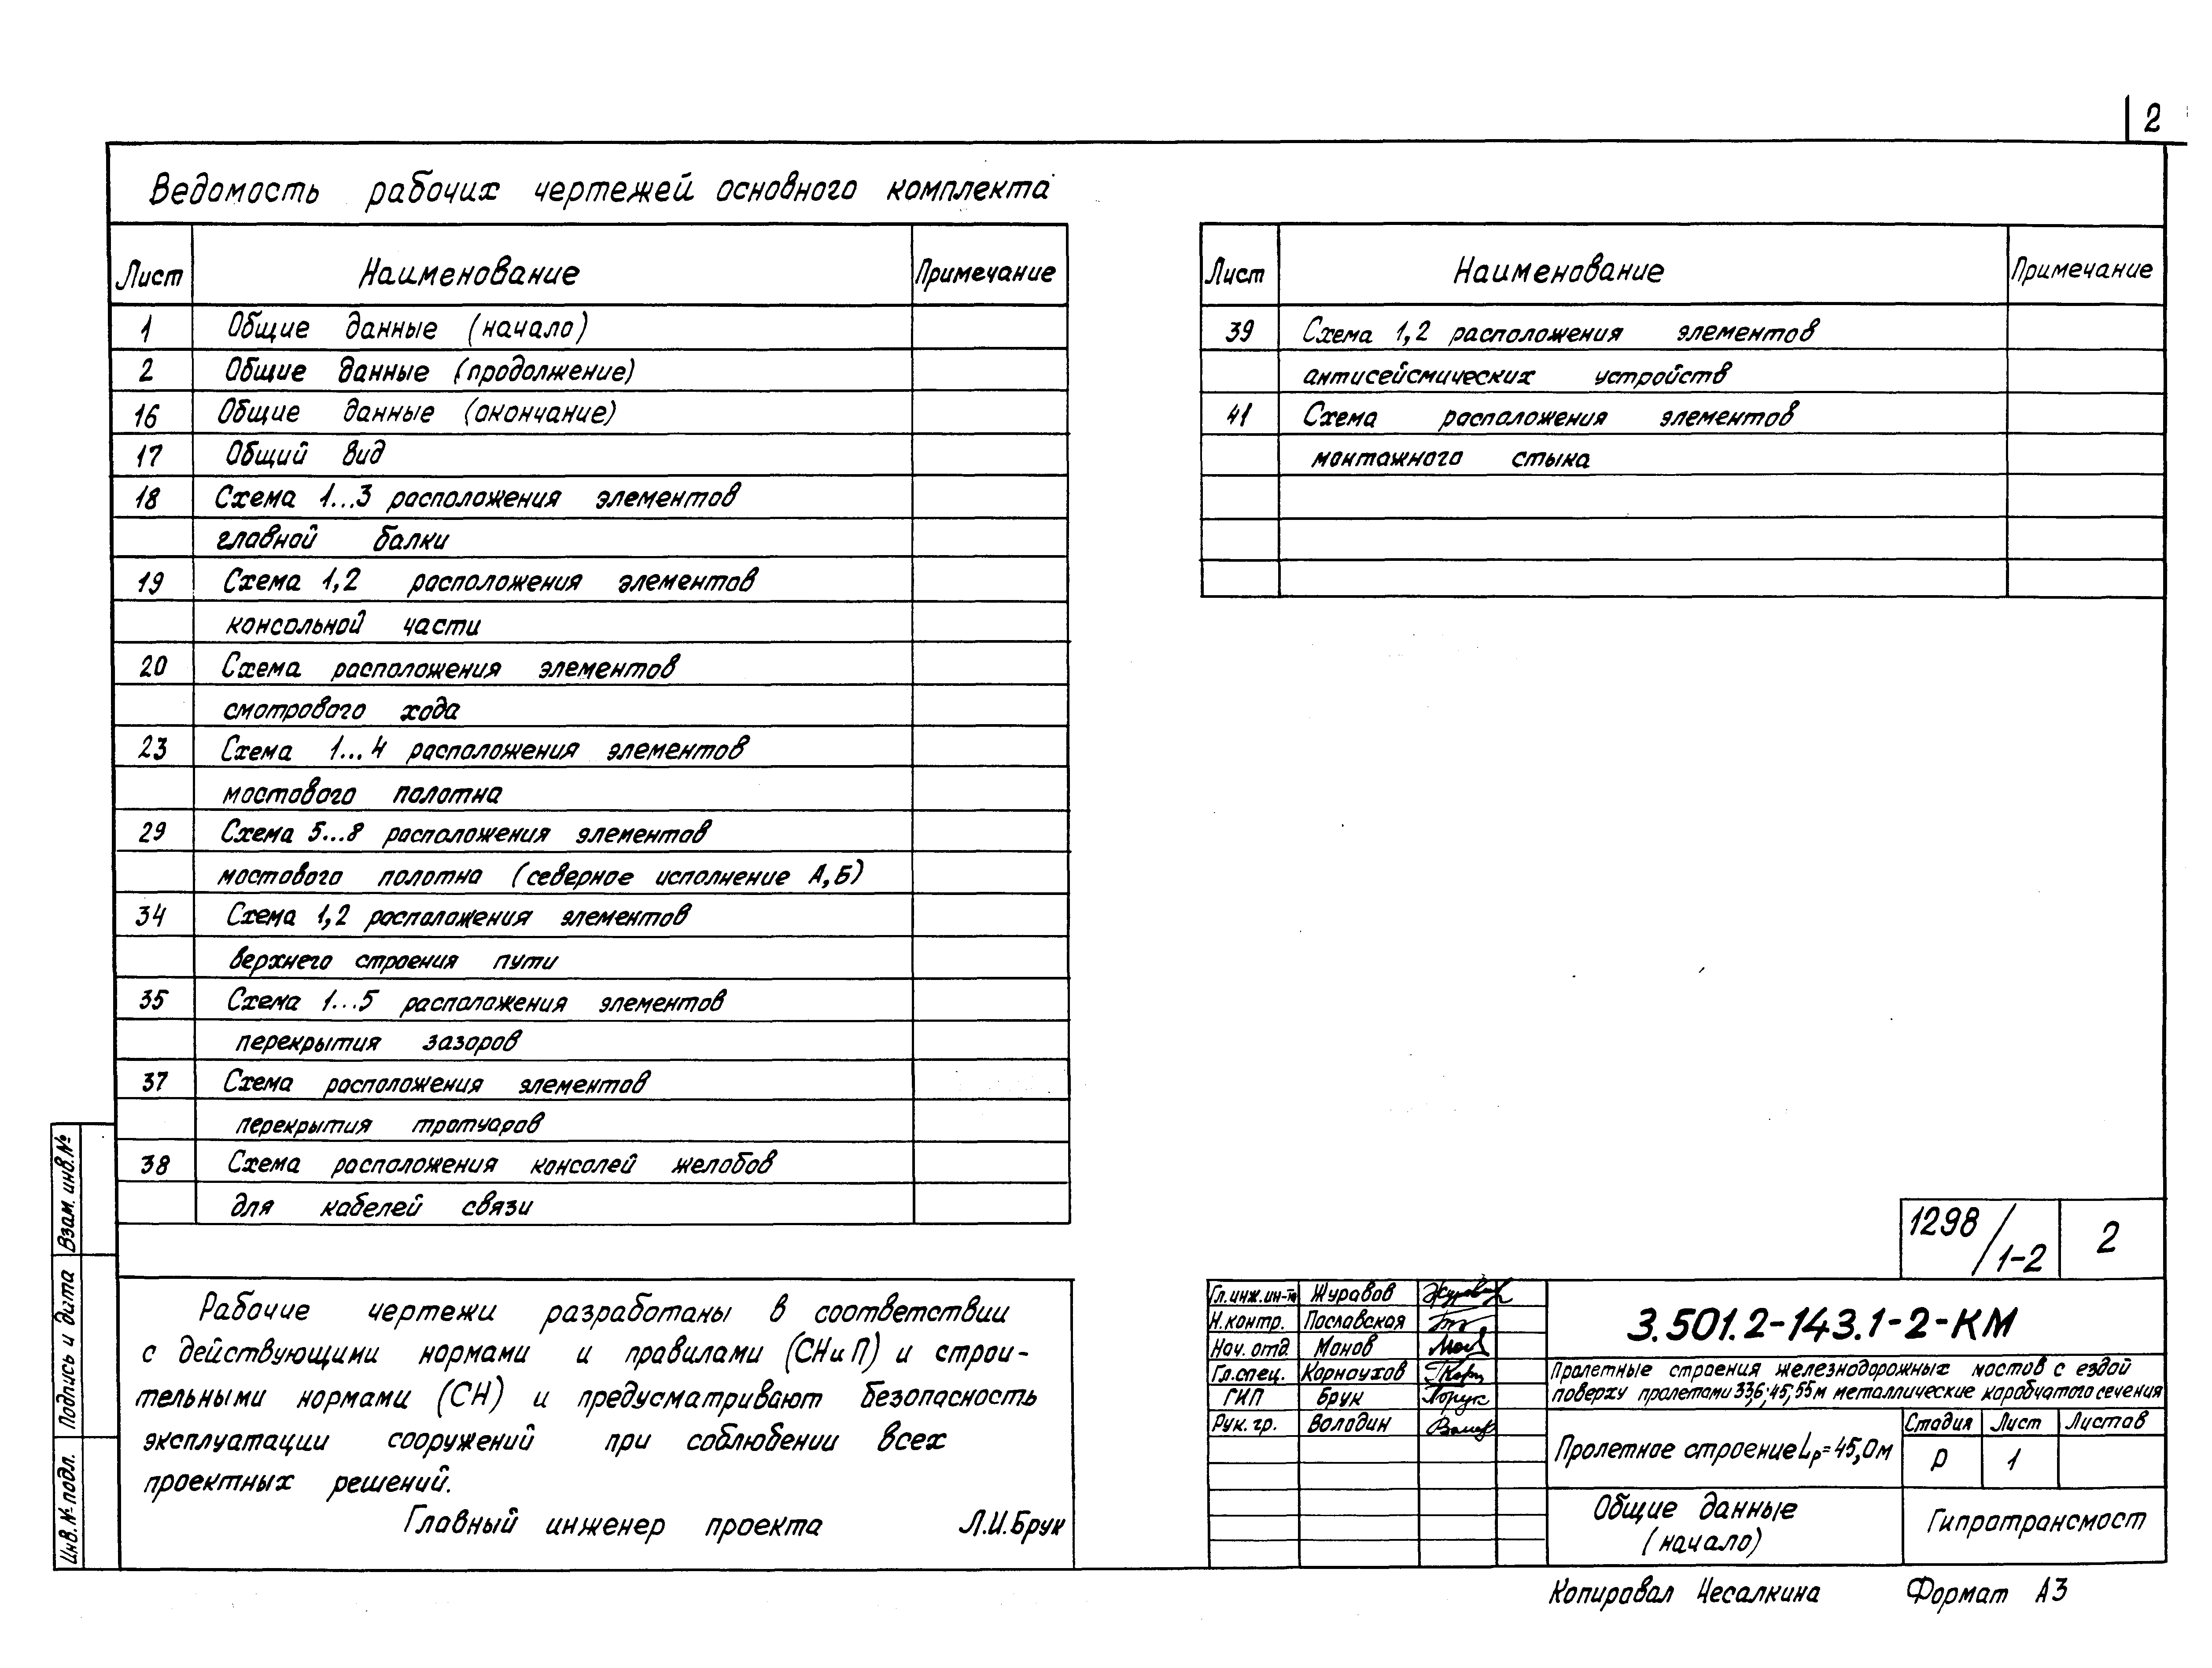 2
Ведомость рабочих чертежей основного комплекта
Лист Наименование Примечание
1 Общие данные (начало)
2 Общие данные (продолжение)
16 Общие данные (окончание)
17 Общий вид
18 Схема 1...3 расположения элементов
главной балки
19 Схема 1,2 расположения элементов
консольной части
20 Схема расположения элементов
смотрового хода
23 Схема 1...4 расположения элементов
мостового полотна
29 Схема 5...8 расположения элементов
мостового полотна (северное исполнение А,Б)
34 Схема 1,2 расположения элементов
верхнего строения пути
35 Схема 1...5 расположения элементов
перекрытия зазоров
37 Схема расположения элементов
перекрытия тротуаров
38 Схема расположения консолей желобов
для кабелей связи
Лист Наименование Примечание
39 Схема 1,2 расположения элементов
антисейсмических устройств
41 Схема расположения элементов
монтажного стыка
Рабочие чертежи разработаны в соответствии
с действующими нормами и правилами (СНиП) и строи-
тельными нормами (СН) и предусматривают безопасность
эксплуатации сооружений при соблюдении всех
проектных решений.
Главный инженер проекта Л.И.Брук
Взам. инв.№
Подпись и дата
Инв.№ подл.
1298/1-2 2
Гл.инж.ин-та Журавов
Н.контр. Пославская
Нач.отд Монов
Гл.спец. Карнаухов
ГИП Брук
Рук.гр. Володин
3.501.2-143.1-2-КМ
Пролетные строения железнодорожных мостов с ездой
поверху пролетами 33,6; 45; 55м металлические коробчатого сечения
Пролетное строение Lр=45,0м
Стадия Лист Листов
Р 1
Общие данные
(начало)
Гипротрансмост
Копировал Чесалкина Формат А3